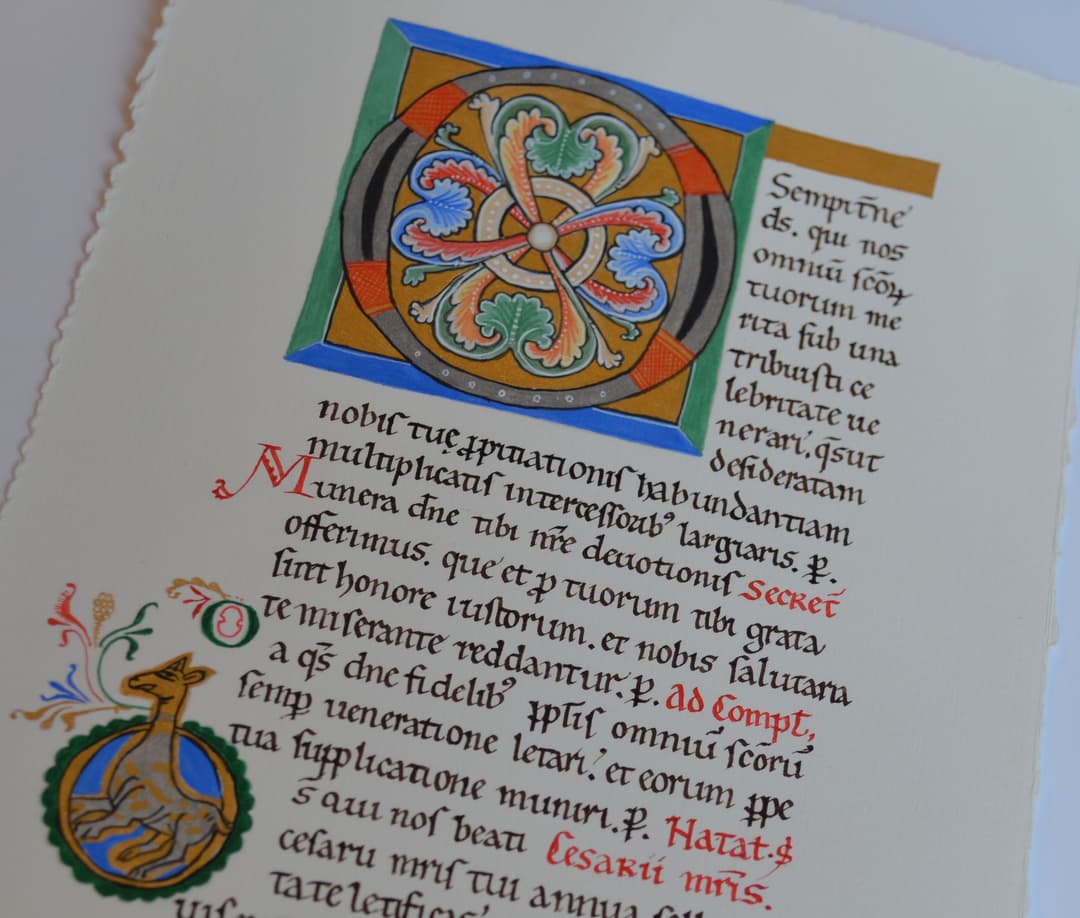 Sempit̄ne
ds. qui nos
omniū ſcōꝝ
tuorum me
rita ſub una
tribuiſti ce
lebritate ue
nerari. q̄sut
deſideratam
nobiſ tuę ꝓpitiationiſ habundantiam
multiplicatiſ interceſſorib᾿ largiaris. ꝑ.
Munera dn̄e tibi nr̄e deuotioniſ Secret̄
offerimus. que et ꝑ tuorum tibi grata
ſint honore iuſtorum. et nobis ſalutaria
te miſerante reddantur. ꝑ. Ad Compl̄,
Da q̄s dn̄e fidelib᾿ ꝑpl̄iſ omniū ſcōrū
ſemꝑ ueneratione letari. et eorum ꝑpe
tua ſupplicatione muniri. ꝑ. Natat. S
Ds qui noſ beati Cesarii mr̄is.
ceſarii mr̄iſ tui annua
tate letificas